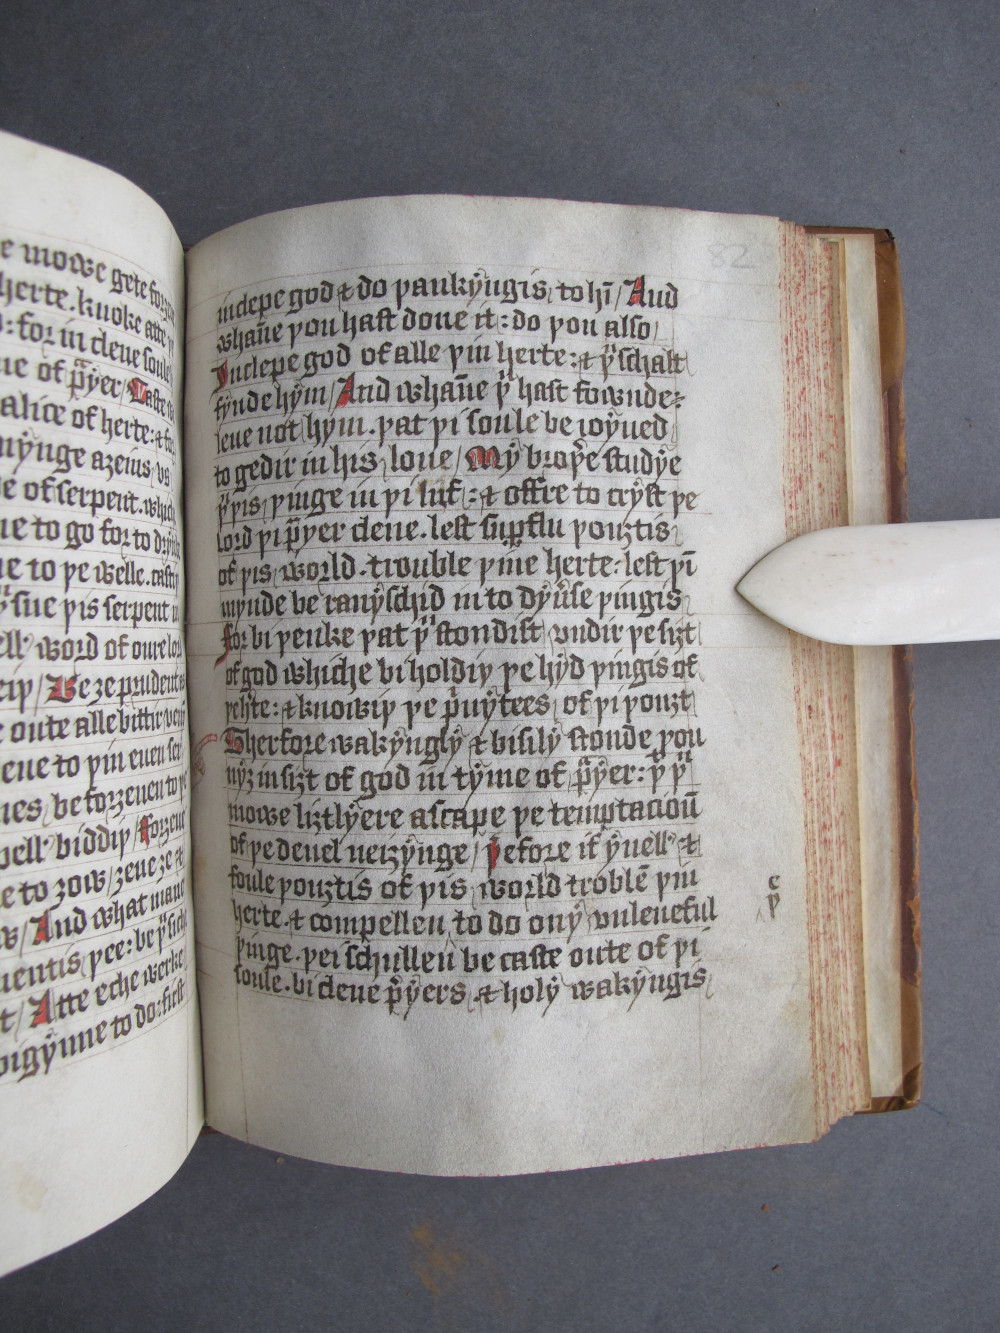 e mowe gete forȝeue
herte . knoke atte þ
: for in clene soule
ne of pͣyer / Caste
alice of herte : & for
mẏnge aȝeius vs
e of serpent . which
ne to go for to drynke
ne to þe welle . castiþ
sue þis serpent in
ell word of oure lord
eiþ / Beȝe prudent as
e oute alle bittir venẏ
ene to þin euen
nes , be forȝeuen to ȝe
ell biddiþ / Forȝeue
e to ȝow / ȝeue ȝe &
w / And what maner
uentis þee : be þͧ sich
t / Atte eche werke
bigẏnne to do : first
82
inclepe god & do þankẏngis to hī / And
whan̄e þou hast done it : do þou also
Inclepe god of alle þin herte : & þͧ schalt
fẏnde hẏm / And whan̄e þͧ hast fownde :
leue not hym . þat þi soule be ioẏued
to gedir in his loue / Mẏ broþ̉e studẏe
þͧ þis þinge in þi luf : & offre to crẏst þe
lord þi p̄yer clene . lest suꝑflu þouȝtis
of þis world . trouble þine herte : lest þī
mynde be ranẏschid in to dẏủse þingis
For bi þenke þat þͧ stondist vndir þe siȝt
of god whiche bi holdiþ þe hẏd þingis of
þehte : & knowiþ þe pͥuẏtees of þi þouȝt
Therfore wakẏnglẏ & bisilẏ stonde þou
nẏȝ in siȝt of god in tẏme of pͣẏer : þͭ þͧ
mowe liȝtlẏere ascape þe temptacioū
of þe deuel neiȝẏnge / Þefore if ẏuell &
foule þouȝtis of þis world troblē þin
herte . & compellen to do onẏ vnleueful
þinge . þei schullen be caste oute of þi
soule . bi clene p̄ẏers & holẏ wakẏngis
c
þ